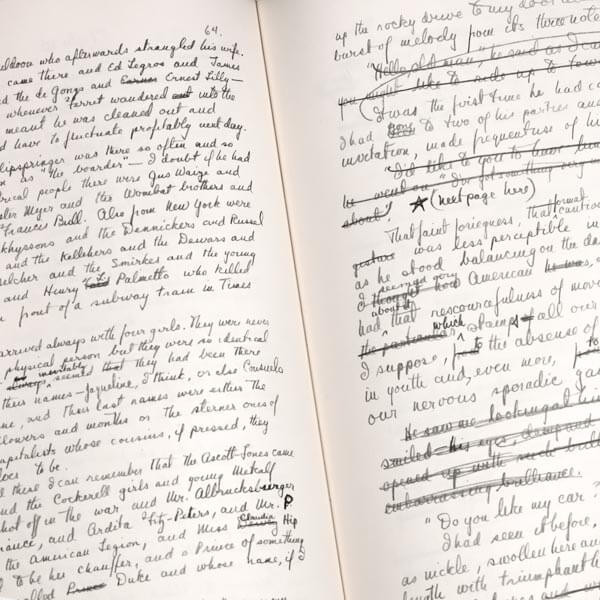 64.
uldoon who afterwards strangled his wife.
came there and Ed Legros and James
d the de Gongs and Ernest Lilly—
whenever Ferret wandered out into the
meant he was cleaned out and
d have to fluctuate profitably next day.
lipspringer was there so often and so
n as "the boarder"— I doubt if he had
real people there were Gus Waize and
Meyer and the Wombat brothers and
Francis Bull. Also from New York were
khyssons and the Dennickers and Russel
and the Kellehers and the Dewars and
elcher and the Smirkes and the young
and Henry Palmetto who killed
front of a subway train in Times
arrived always with four girls. They were never
physical person but they were so identical
inevitably seemed that they had been there
their names—Jaqueline, I think, or else Consuela
me, and their last names were either the
lowers and months or the sterner ones of
apitalists whose cousins, if pressed, they
lves to be.
l these I can remember that the Ascott-Jones came
nd the Cockerell girls and young Metcalf
hot off in the war and Mr. Albrucksburger
iance, and Ardita Fitz-Peters, and Mr. P
the American Legion, and Miss Claudia Hip
d to be her chauffer, and a Prince of something
alled Duke and whose name, if I
up the rocky drive to my door
burst of melody from its three note
"Hello, old man," he said as I ca
you might like to ride up to town
(It was the first time he had ca
I had gone to two of his parties and
invitation, made frequent use of his
"I'd like to you to have lun
he went on. "I've got something very
about."
★ (next page here)
That faint foriegness, that formal caution
gesture was less perceptible in
as he stood balancing on the da
I seemed very American he was,
I thought had
about it
had that resourcefulness of move
the particular which stamps all our
I suppose, to the absense of
in youth and, even more,
our nervous sporadic ga
He saw me looking at his
smiled his eyes,
opened up with such brill
embarrassing brilliance.
"Do you like my car?
I had seen it before,
as nickle, swollen here and
length with triumphant h